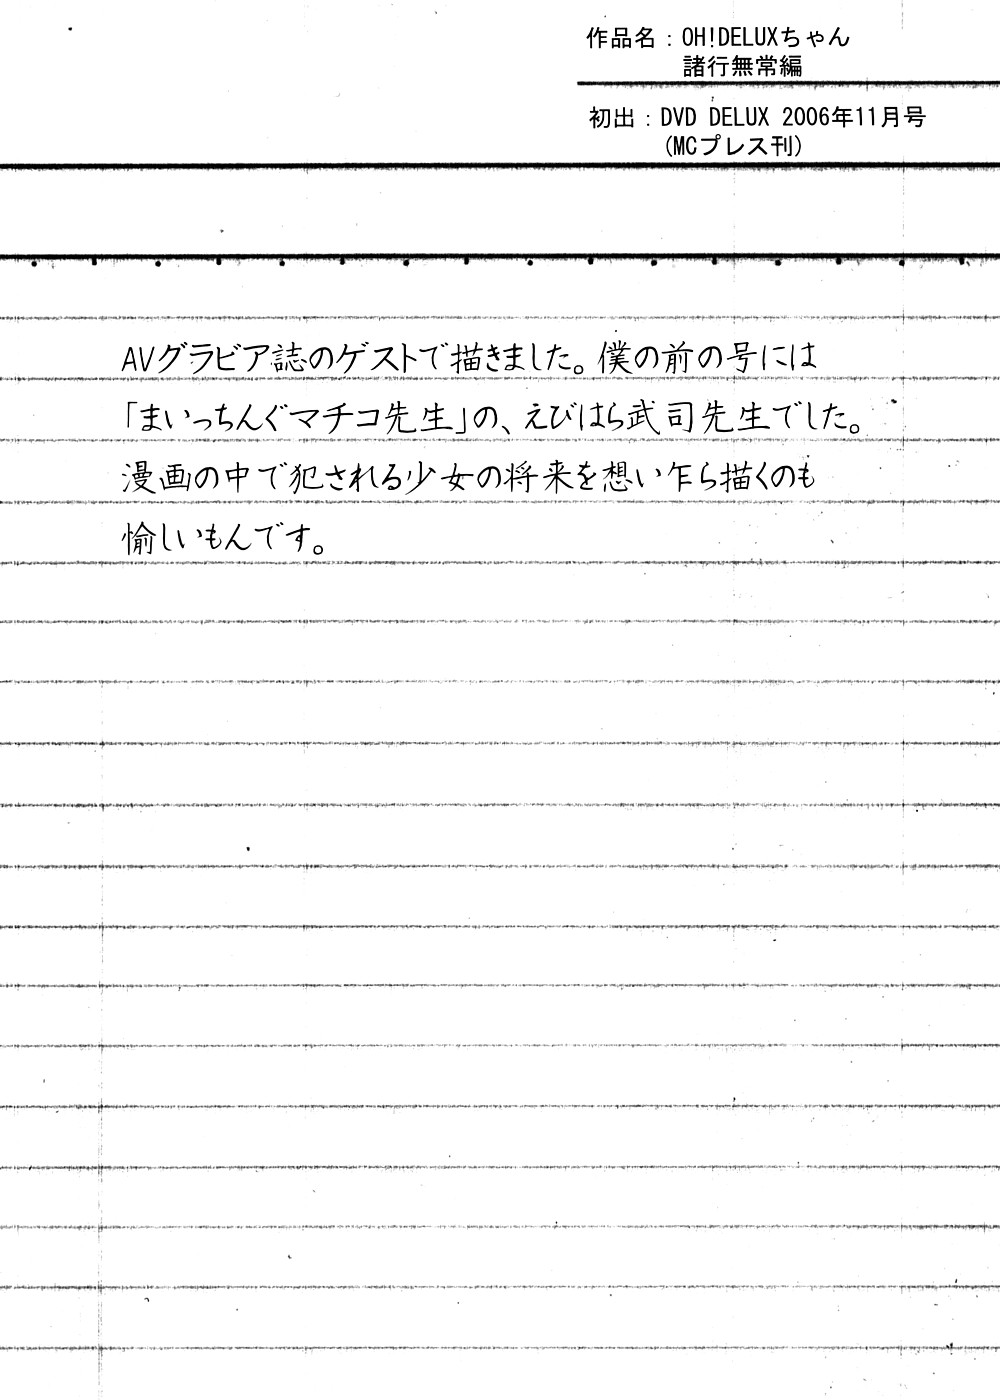 作品名：OH!DELUXちゃん
諸行無常編
初出：DVD DELUX 2006年11月号
(MCプレス刊)
AVグラビア誌のゲストで描きました。僕の前の号には
「まいっちんぐマチコ先生」の、えびはら武司先生でした。
漫画の中で犯される少女の将来を想い乍ら描くのも
愉しいもんです。